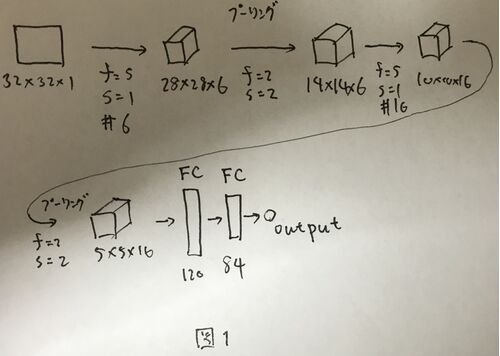 プーリング
32×32×1
f=5
s=1
#6
28×28×6
f=2
s=2
14×14×6
f=5
s=1
#16
10×10×16
プーリング
f=2
s=2
5×5×16
FC
120
FC
84
output
図1